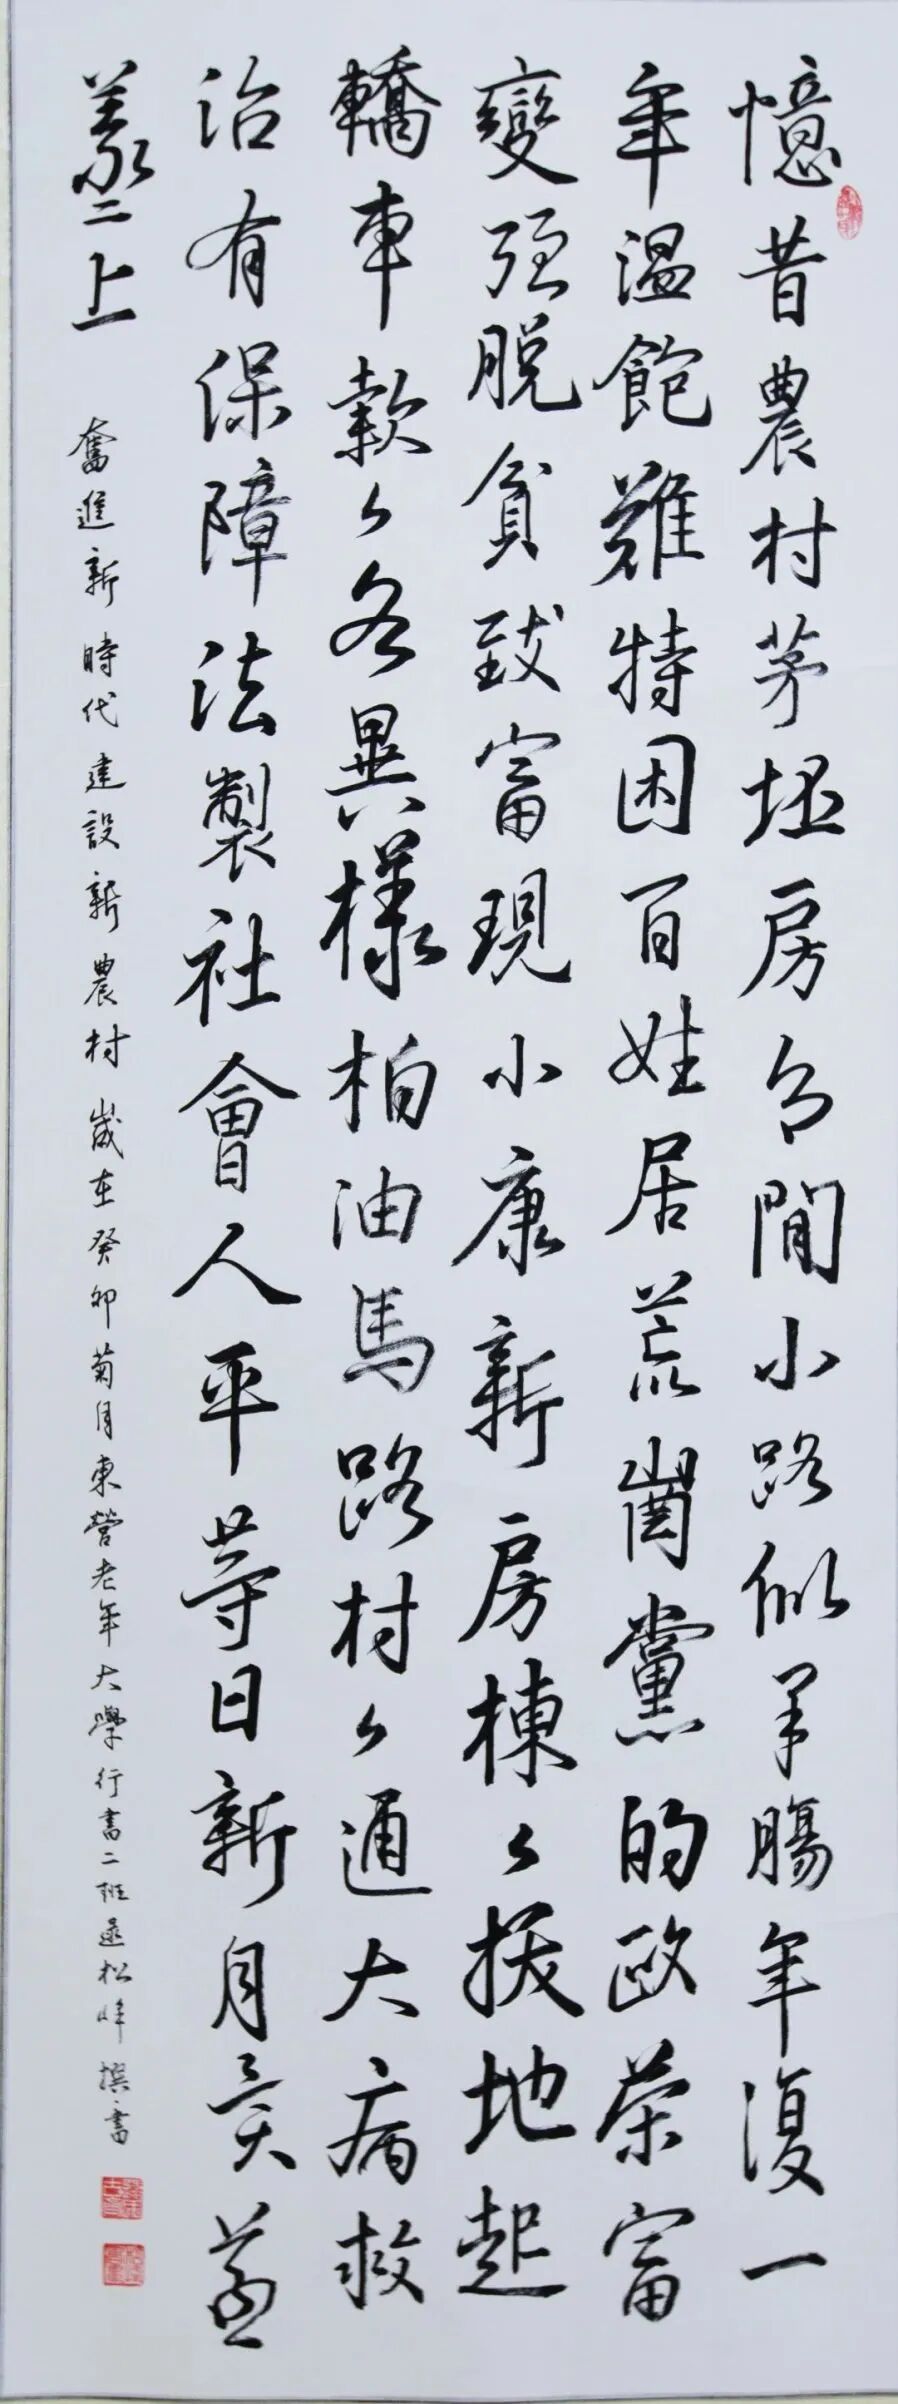 憶昔農村茅坯房乡間小路似羊腸年復一
年温飽難特困百姓居荒崗黨的政策富
變强脱貧致富現小康新房棟々拔地起
轎車款々各異樣柏油馬路村々通大病救
治有保障法製社會人平等日新月異
上
奮進新時代建設新農村 歲在癸卯菊月東營老年大學行書二班逯松峰撰書